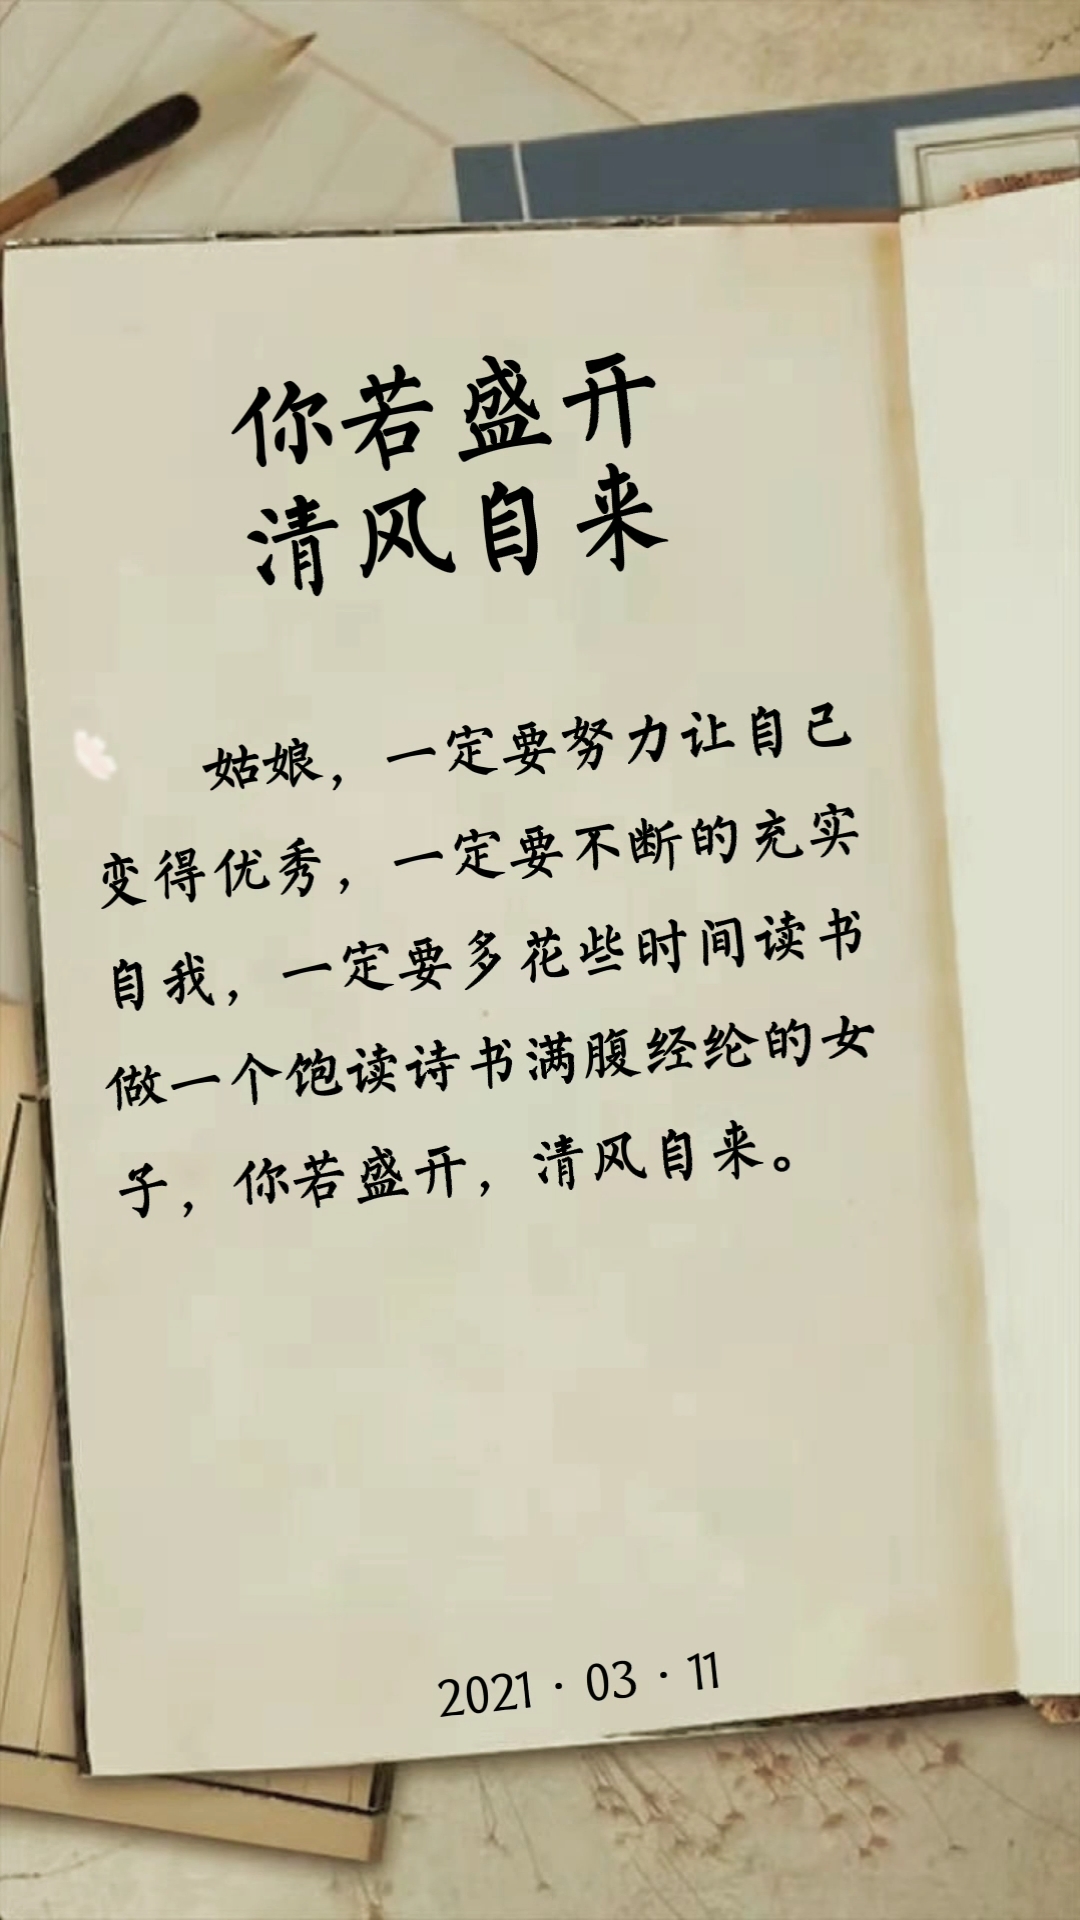 你若盛开
清风自来
姑娘，一定要努力让自己
变得优秀，一定要不断的充实
自我，一定要多花些时间读书
做一个饱读诗书满腹经纶的女
子，你若盛开，清风自来。
2021·03·11